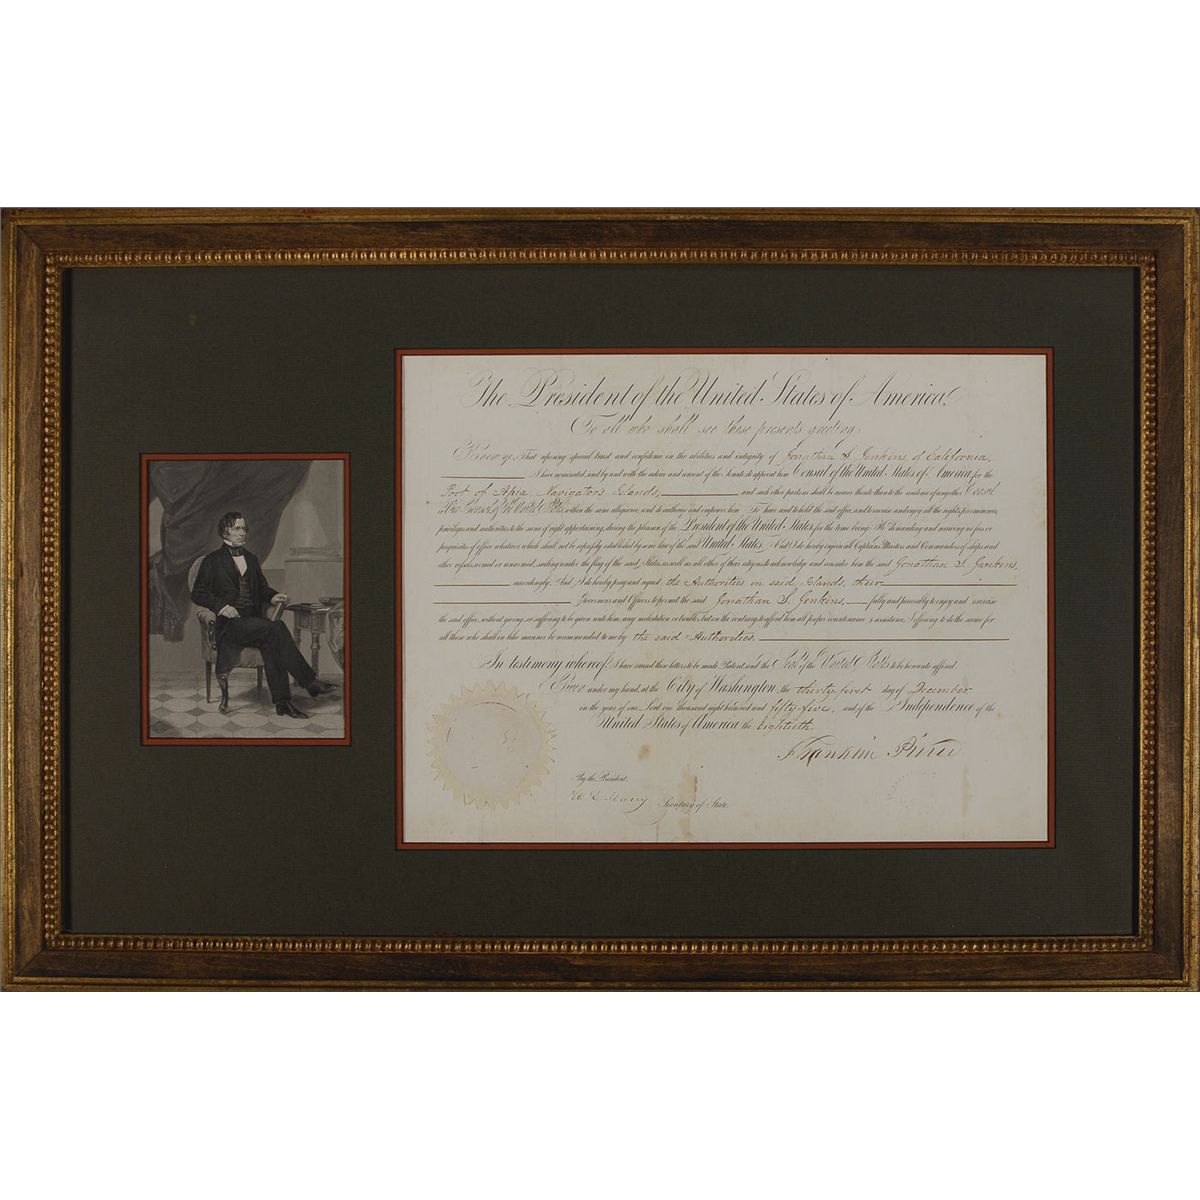 The President of the United States of America,
To all who shall see these presents greeting:
Know ye, That reposing special trust and confidence in the abilities and integrity of Jonathan S Jenkins of California,
I have nominated, and by and with the advice and consent of the Senate do appoint him Consul of the United States of America, for the
Port of Apia, Navigators Islands, and such other parts as shall be nearer thereto than to the residence of any other Consul
or Vice Consul of the United States, within the same allegiance; and do authorize and empower him To have and to hold the said office, and to exercise and enjoy all the rights, preeminences,
privileges and authorities to the same of right appertaining, during the pleasure of the President of the United States for the time being; He demanding and receiving no fees or
perquisites of office whatever, which shall not be expressly established by some law of the said United States. And I do hereby enjoin all Captains Masters and Commanders of ships and
other vessels, armed or unarmed, sailing under the flag of the said States, as well as all other of their citizens to acknowledge and consider him the said Jonathan S Jenkins,
accordingly. And I do hereby pray and request the Authorities in said Islands, their
Governors and Officers to permit the said Jonathan S. Jenkins, fully and peaceably to enjoy and exercise
the said office, without giving, or suffering to be given unto him, any molestation or trouble; but on the contrary, to afford him all proper countenance & assistance; I offering to do the same for
all those who shall in like manner be recommended to me by the said Authorities.
In testimony whereof, I have caused these letters to be made Patent, and the Seal of the United States to be hereunto affixed.
Given under my hand, at the City of Washington, the thirty first day of December
in the year of our Lord one thousand eight hundred and fifty five, and of the Independence of the
United States of America, the Eightieth.
Franklin Pierce
By the President.
W L Marcy Secretary of State.